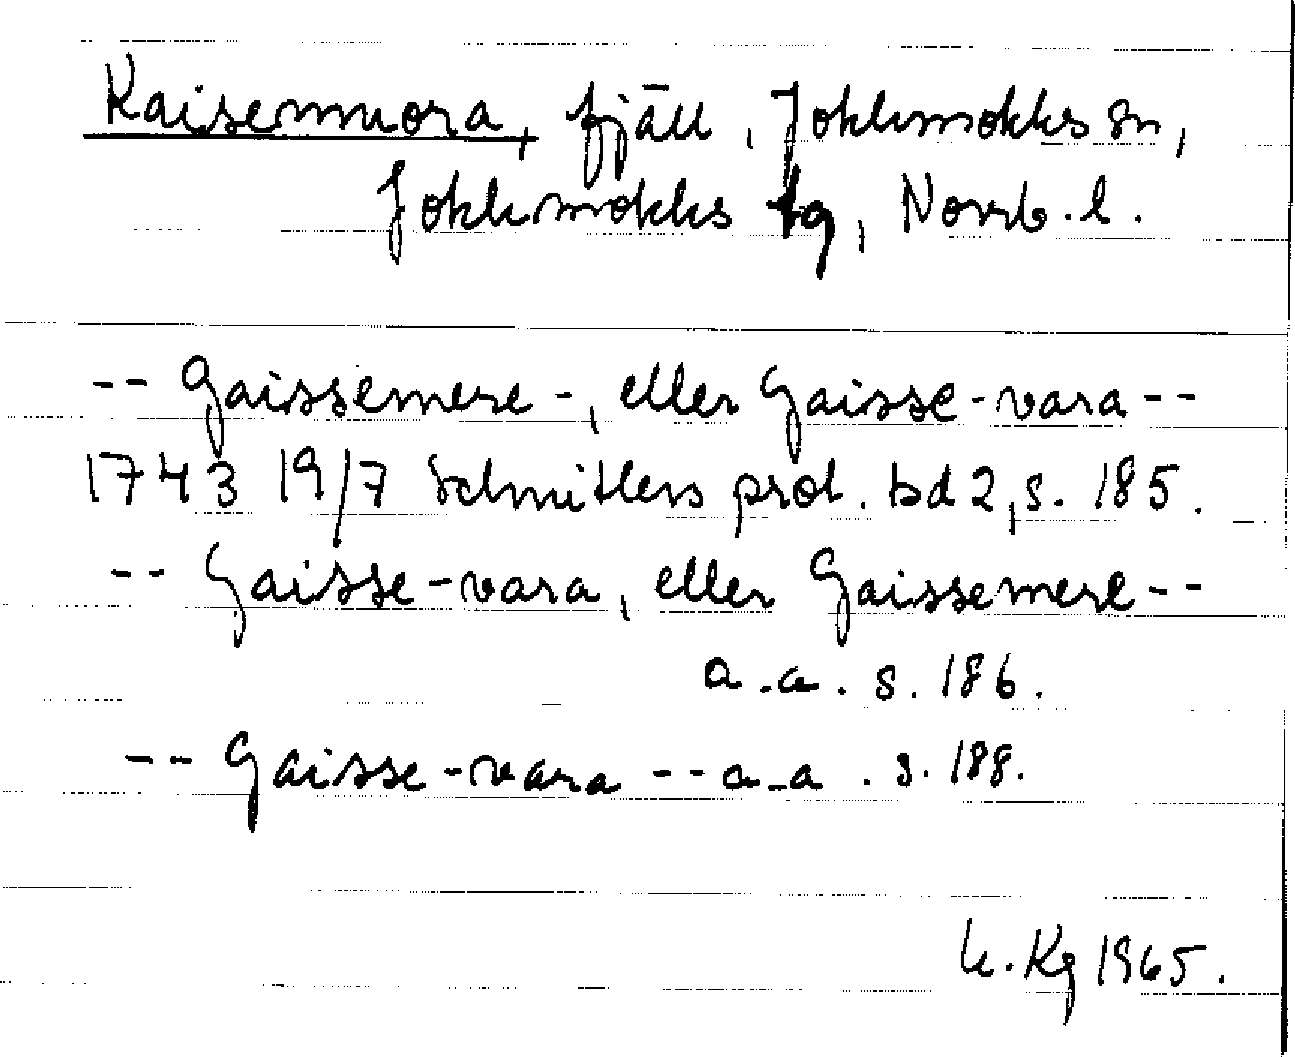 Kaisenmuora, fjäll, Jokkmokks sn,
Jokkmokks tg, Norrb. l.
-- Gaissemere-, eller Gaisse-vara --
1743 19/7 Schnitlers prot. bd 2, s. 185.
-- Gaisse-vara, eller Gaissemere --
a.a. s. 186.
-- Gaisse-vara -- a.a. s. 188.
K. Kg 1965.